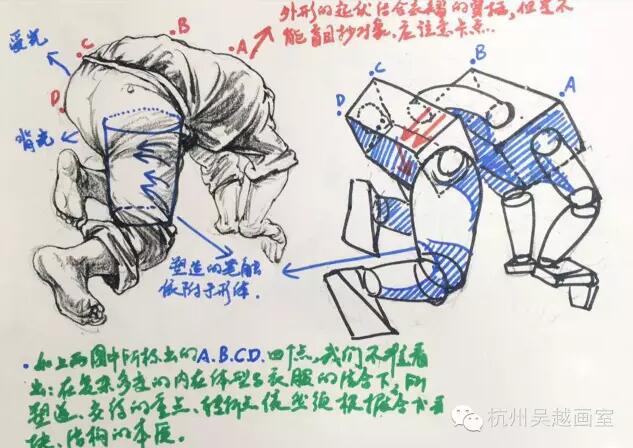 外形的起伏结合衣褶的穿插，但是不
能盲目抄对象，应注意卡点.
受光
C
B
A
D
背光
D
C
B
A
塑造的笔触
依附于形体.
如上两图中所标出的A.B.C.D.四个点，我们不难看
出：在复杂多变的内在体型与衣服的结合下，刚
塑造、交待的重点、转折点依然须根据各个
块、结构的本质。
杭州吴越画室